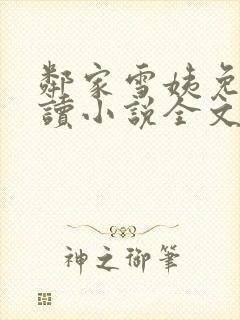 鄰家雪姨免
讀小說全文
神之御筆